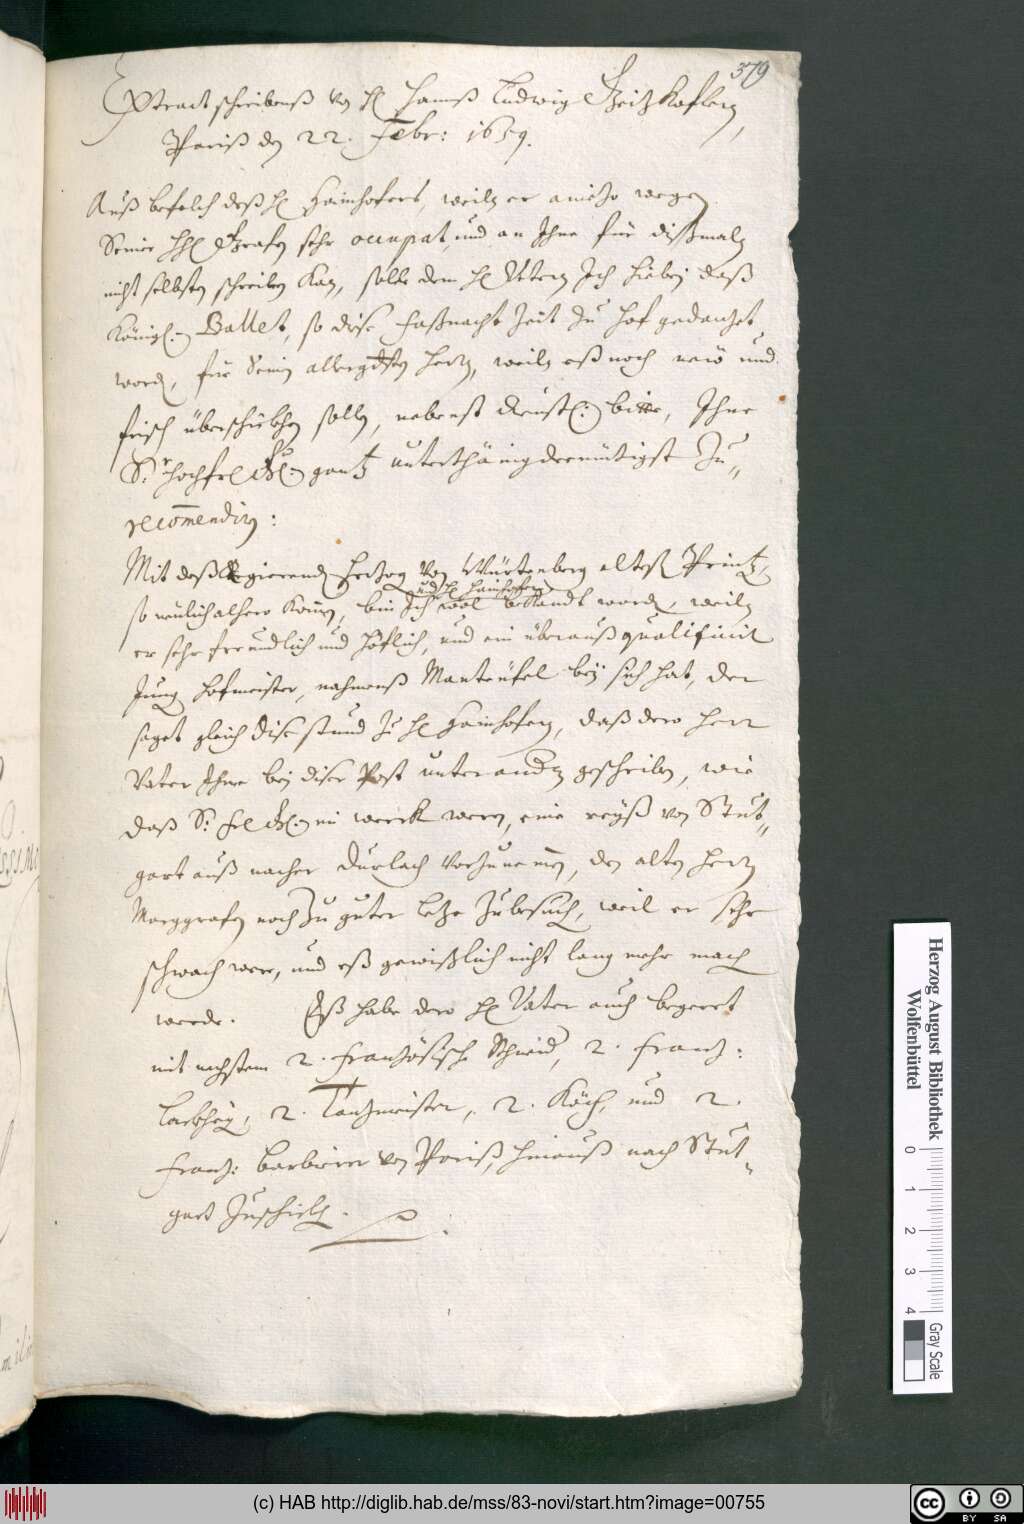 379
Extract schreibenß von H. Hannß Ludwig
Pariß den 22. Febr: 1659.
Auß befelch deß H. Hainhofers, weiln er aniezo wegen
Seiner HH. Grafen sehr occupat, und an Ihne für dißmaln
nicht selbsten schreiben kan, solle dem H. Vettern Ich hiebey daß
Königl: Ballet, so dise Faßnacht Zeit zu Hof gedanzet
worden, für Seinen allergdsten Herrn, weiln eß noch new und
frisch überschickhen sollen, nebenst dienstl: bitte, Ihne
Sr. hochfrl. Dhl. gantz unterthänig demütigst zu
recommendirn:
Mit deß Regierenden Herzog von Würtenberg eltest Printzen,
und H. Hainhofern
so neulich alhero kommen, bin Ich wol bekandt worden, weiln
er sehr freundlich und höflich, und ein überauß qualificirt
Jung Hofmeister, nahmenß Manteüfel bey sich hat, der
saget gleich dise stund zu H. Hainhofern, daß dero Herr
Vater Ihme bei diser Post unter andern geschriben, wie
daß Sr. frl. Dhl. im werck weren, eine reyß von Stut-
gart auß nacher Durlach vorzunemen, den alten Herrn
Marggrafen noch zu guter leze zubesuchen, weil er sehr
schwach were, und eß gewißlich nicht lang mehr machen
werde. Eß habe dero H. Vater auch begeret
mit nechstem 2. Französische Schneider, 2. Franz:
Lackheyen, 2. Tantzmeister, 2. Köch, und 2.
Franz: Barbirer von Pariß, hinauß nach Stut-
gart zuschicken.
Herzog August Bibliothek
Wolfenbüttel
0 1 2 3 4
Gray Scale
(c) HAB http://diglib.hab.de/mss/83-novi/start.htm?image=00755
cc BY SA